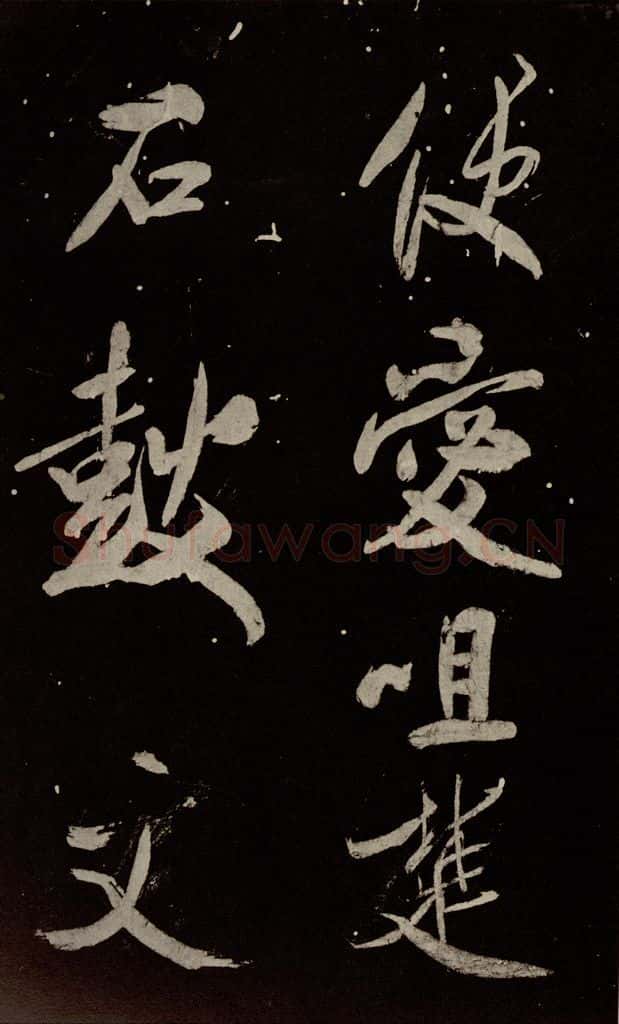 便愛咀楚
石鼓文
Shufawang.CN